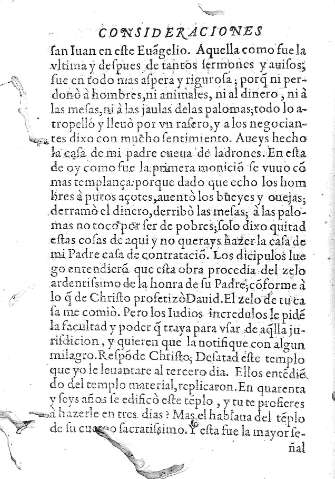 CONSIDERACIONES
san Iuan en este Euãgelio. Aquella como fue la
vltima y despues de tantos sermones y auisos;
fue en todo mas aspera y rigurosa; porq̃ ni per-
donò à hombres, ni animales, ni al dinero, ni à
las mesas, ni à las jaulas delas palomas; todo lo a-
tropellò y lleuò por vn rasero, y a los negocian-
tes dixo con mucho sentimiento. Aueys hecho
la casa de mi padre cueua de ladrones. En esta
de oy como fue la primera moniciõ se vuuo cõ
mas templança: porque dado que echo los hom
bres à puros açotes, auentò los bueyes y ouejas;
derramò el dinero, derribò las mesas; à las palo-
mas no toco por ser de pobres; solo dixo quitad
estas cosas de aqui y no querays hazer la casa de
mi Padre casa de contrataciõ. Los dicipulos lue
go entendierõ que esta obra procedia del zelo
ardentissimo de la honra de su Padre; cõforme à
lo q̃ de Christo profetizò Dauid. El zelo de tu ca
sa me comiò. Pero los Iudios incredulos le pidẽ
la facultad y poder q̃ traya para vsar de aq̃lla ju-
risdicion, y quieren que la notifique con algun
milagro. Respõde Christo; Desatad este templo
que yo le leuantare al tercero dia. Ellos entẽdiẽ
do del templo material, replicaron. En quarenta
y seys años se edificò este tẽplo, y tu te profieres
à hazerle en tres dias? Mas el hablaua del tẽplo
de su cuerpo sacratissimo. Y esta fue la mayor se-
ñal